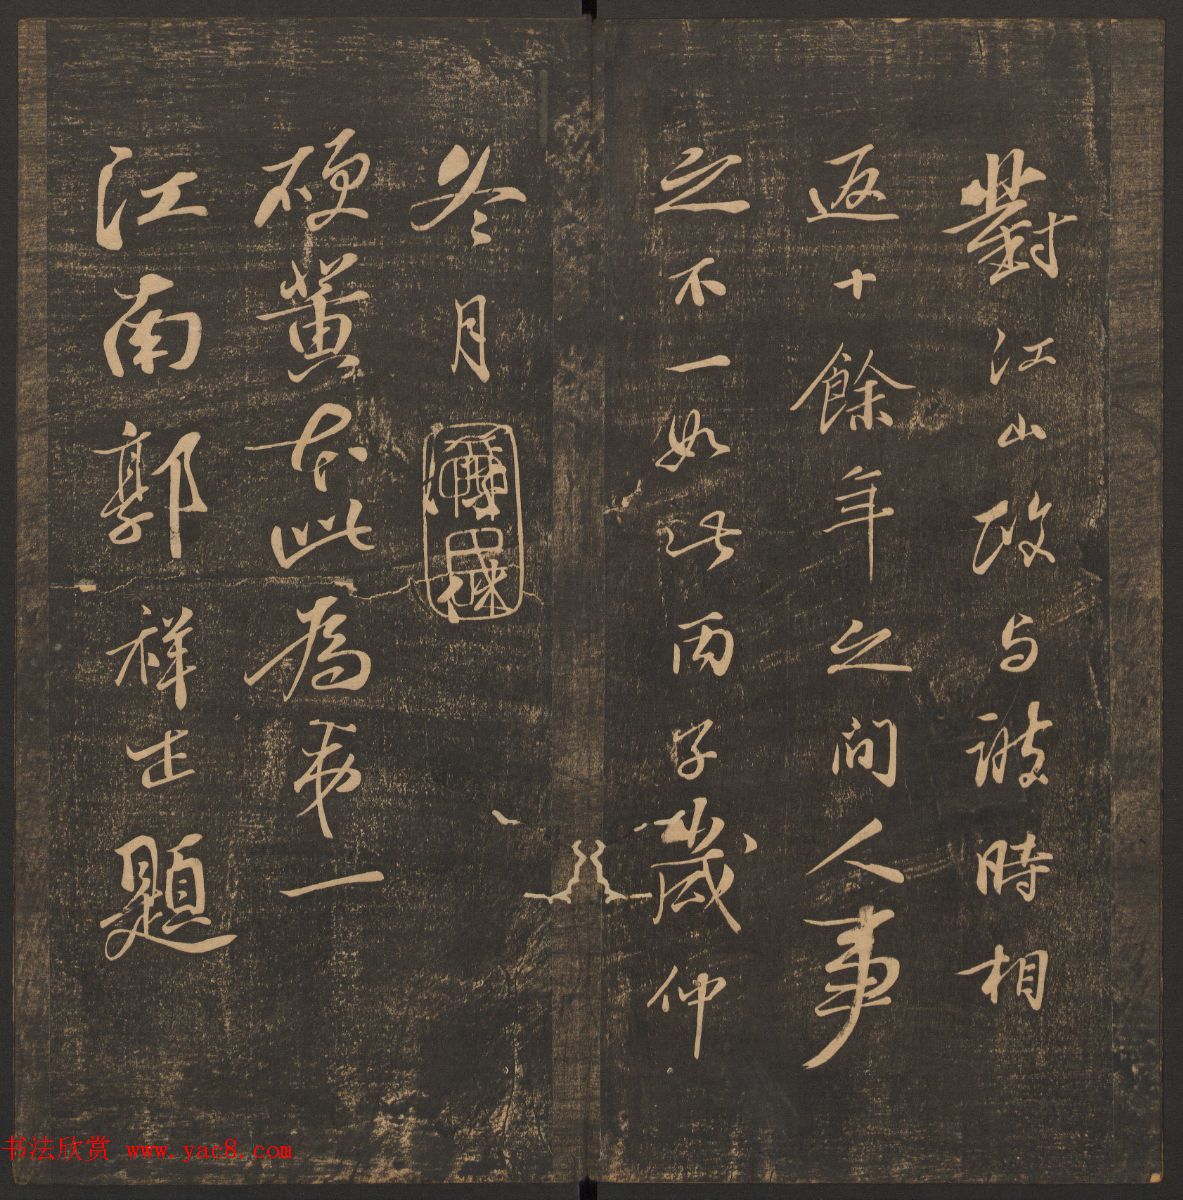 對江山改与讌時相
返十餘年之間人事
之不一如此丙子歲仲
冬月
硬黄本此為第一
江南郭祥士題
书法欣赏 www.yac8.com